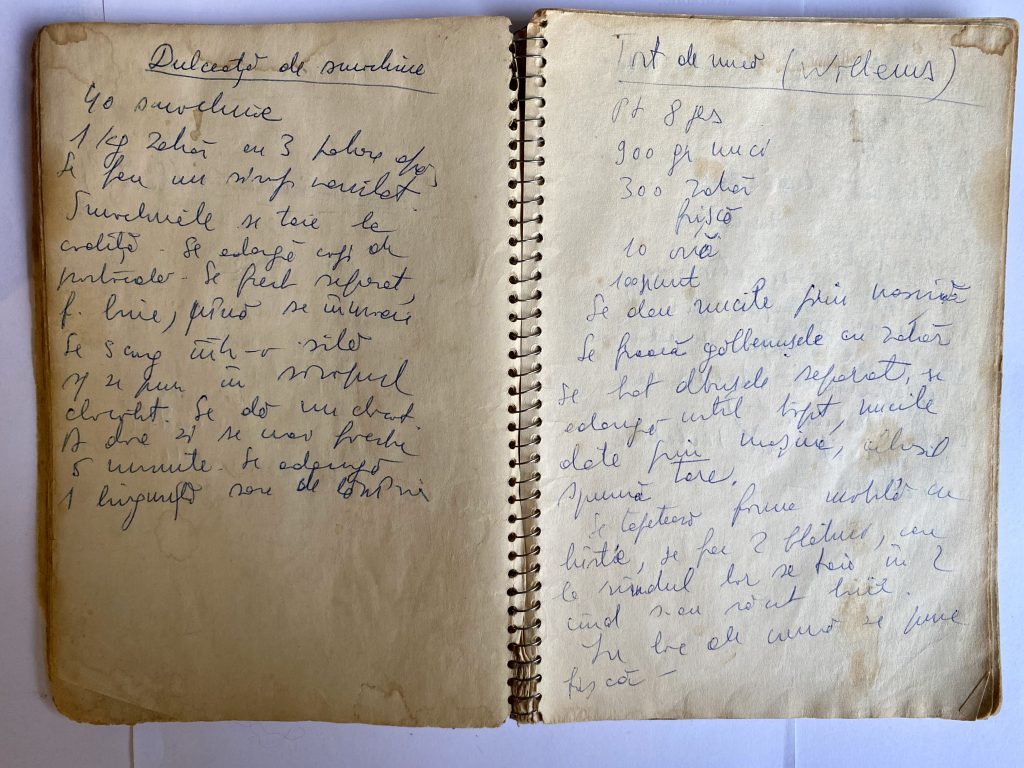 Dulceață de smochine
40 smochine
1 kg zahăr cu 3 pahare apă
Se face un sirop vanilat
Smochinele se taie la
codiță. Se adaugă coji de
portocale. Se fierb separat,
f. bine, până se înmoaie
Se scurg într-o sită
și se pun în siropul
clocotit. Se dă un clocot.
A doua zi se mai fierbe
5 minute. Se adaugă
1 linguriță sare de lămâie
Tort de nuci (Willems)
Pt 8 pers
900 gr nuci
300 zahăr
frișcă
10 ouă
100 gr unt
Se dau nucile prin mașină
Se freacă gălbenușele cu zahăr
Se bat albușele separat, se
adaugă untul topit, nucile
date prin mașină, albușul
spumă tare.
Se tapetează forma mobilă cu
hârtie, se fac 2 blaturi, care
la rândul lor se taie în 2
când s-au răcit bine.
În loc de cremă se pune
frișcă –